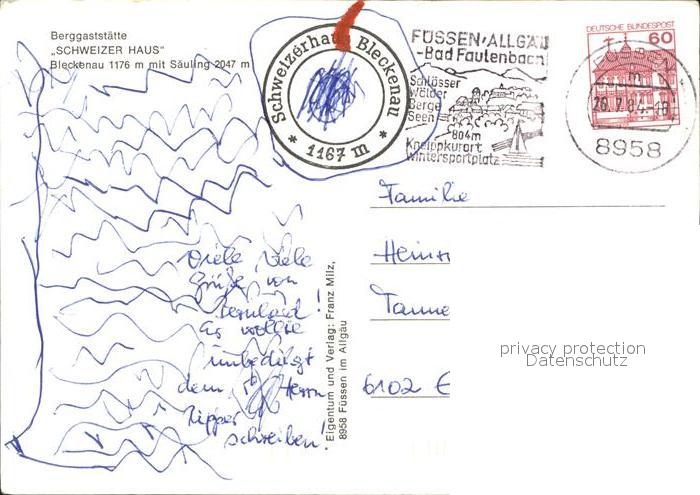 Berggaststätte
„SCHWEIZER HAUS"
Bleckenau 1176 m mit Säuling 2047 m
Schweizerhaus Bleckenau
* 1167 m *
FÜSSEN·ALLGÄU
-Bad Faulenbach
Schlösser
Wälder
Berge
Seen
804m
Kneippkurort
Wintersportplatz
DEUTSCHE BUNDESPOST
60
FÜSSEN
26.7.84-18
8958
Familie
Heinr
Tanne
6102 E
Viele viele
Grüße von
Bernhard!
Er wollte
unbedingt
dem Herrn
Zipper
schreiben!
Eigentum und Verlag: Franz Milz,
8958 Füssen im Allgäu
privacy protection
Datenschutz